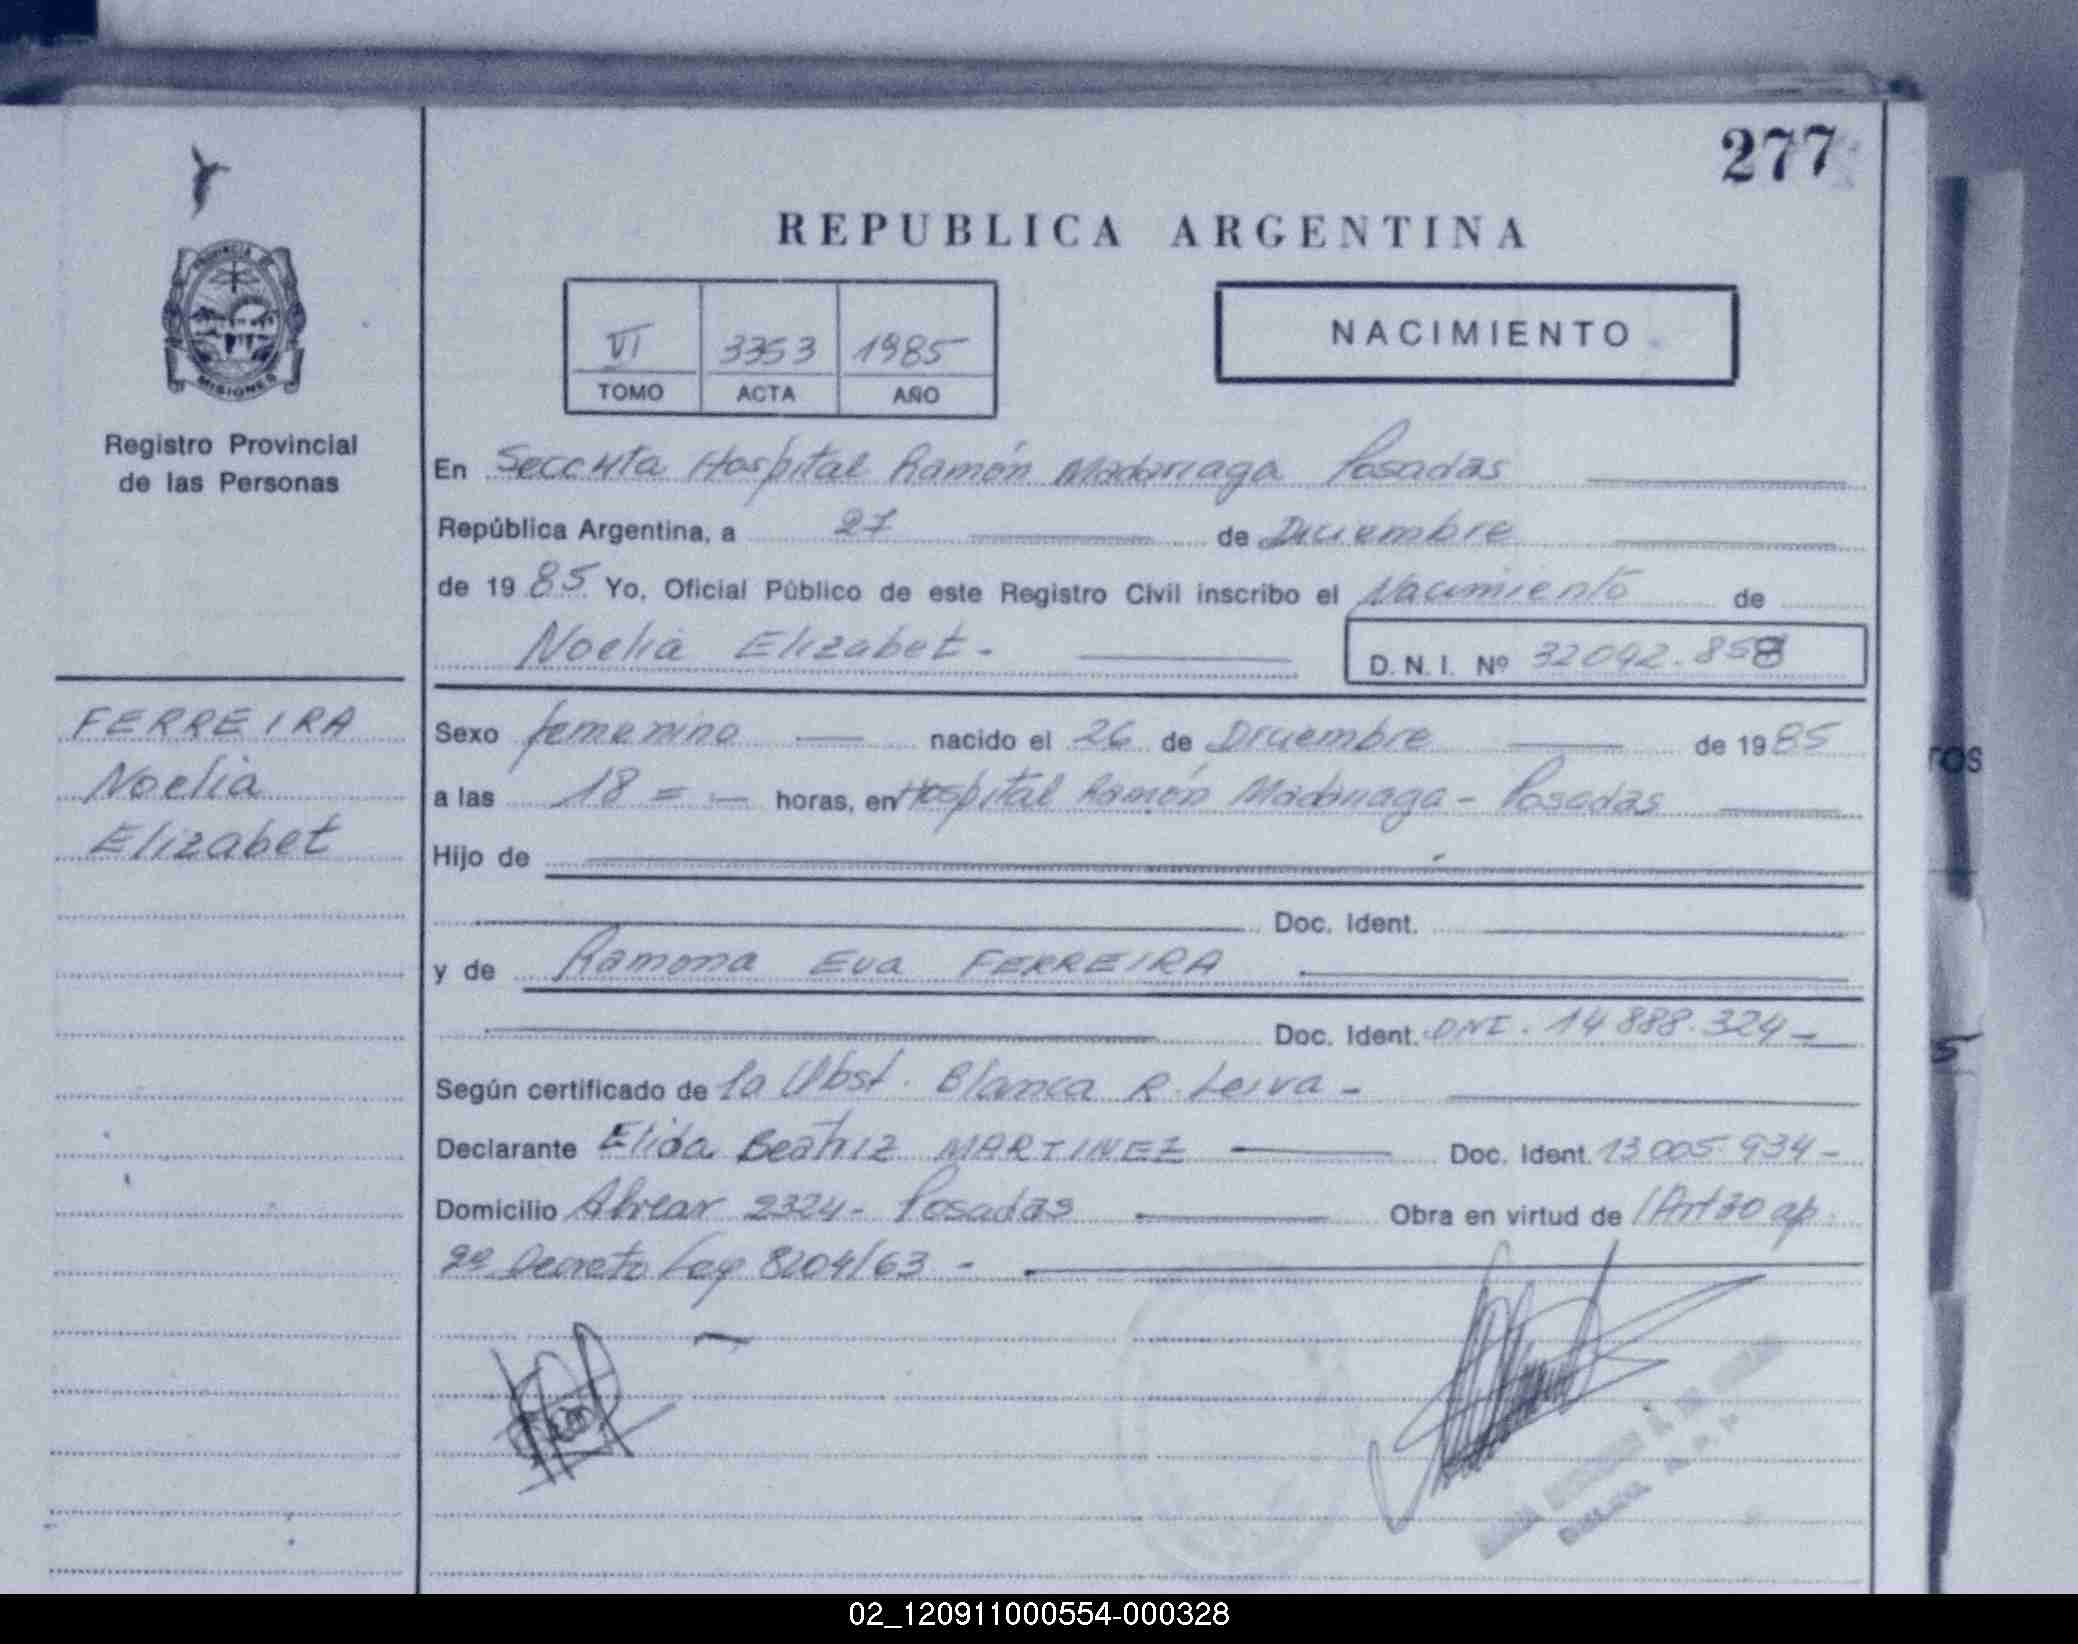 277
REPUBLICA ARGENTINA
PROVINCIA DE
MISIONES
Registro Provincial
de las Personas
VI 3353 1985
TOMO ACTA AÑO
NACIMIENTO
En Hospital Ramón Madariaga Posadas
República Argentina, a 27 de Diciembre
de 1985 Yo, Oficial Público de este Registro Civil inscribo el Nacimiento de
Noelia Elizabet.-
D. N. I. Nº 32042.858
FERREIRA
Noelia
Elizabet
Sexo femenino nacido el 26 de Diciembre de 1985
a las 18 horas, en Hospital Ramón Madariaga - Posadas
Hijo de
Doc. Ident.
y de Ramona Eva FERREIRA
Doc. Ident. DNI. 14888.324-
Según certificado de la Obst. Blanca R. Leiva -
Declarante Elida Beatriz MARTINEZ Doc. Ident. 13005.934-
Domicilio Alvear 2324- Posadas Obra en virtud de Art 30 ap.
2º Decreto Ley 8204/63 -
ros
5
02_120911000554-000328